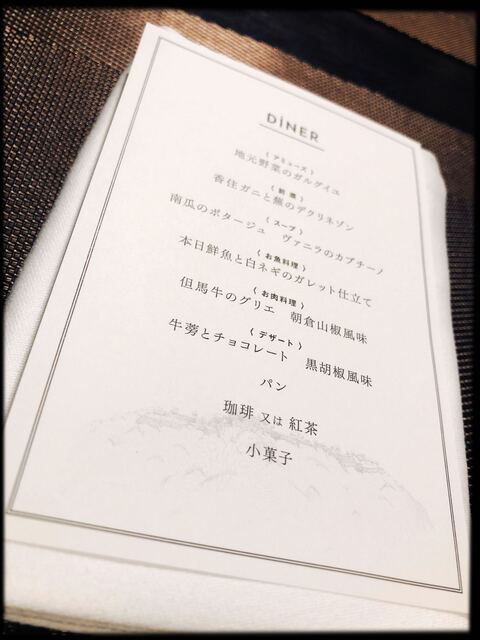 DINER
（アミューズ）
地元野菜のガルグイユ
（前菜）
香住ガニと蕪のデクリネゾン
（スープ）
南瓜のポタージュ　ヴァニラのカプチーノ
（お魚料理）
本日鮮魚と白ネギのガレット仕立て
（お肉料理）
但馬牛のグリエ　朝倉山椒風味
（デザート）
牛蒡とチョコレート　黒胡椒風味
パン
珈琲 又は 紅茶
小菓子